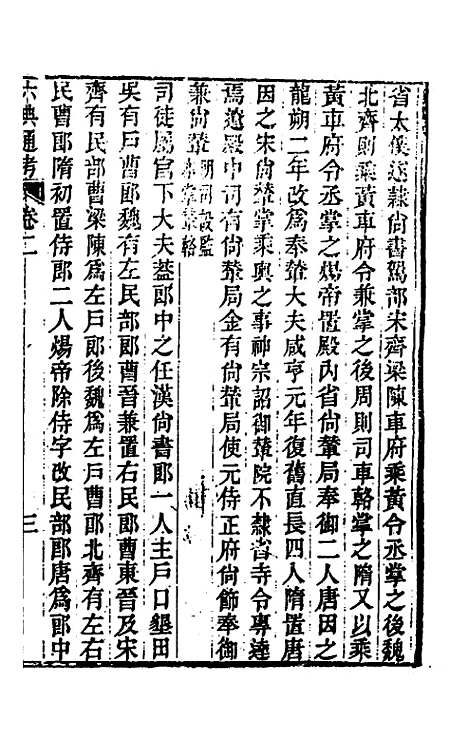 省太僕遂隸尚書駕部宋齊梁陳車府乘黃令丞掌之後魏
北齊則乘黃車府令兼掌之後周則司車輅掌之隋又以乘
黃車府令丞掌之煬帝置殿內省尚輦局奉御二人唐因之
龍朔二年改爲奉輦大夫咸亨元年復舊直長四人隋置唐
因之宋尚輦掌乘輿之事神宗詔御輦院不隸省寺令專達
焉遼殿中司有尚輦局金有尚輦局使元侍正府尚飾奉御
兼尚輦
司徒屬官下大夫蓋郎中之任漢尚書郎一人主戶口墾田
吳有戶曹郎魏有左民部郎曹晉兼置右民郎曹東晉及宋
齊有民部曹梁陳爲左戶郎後魏爲左戶曹郎北齊有左右
民曹郎隋初置侍郎二人煬帝除侍字改民部郎唐爲郎中
六典通考
卷二
三